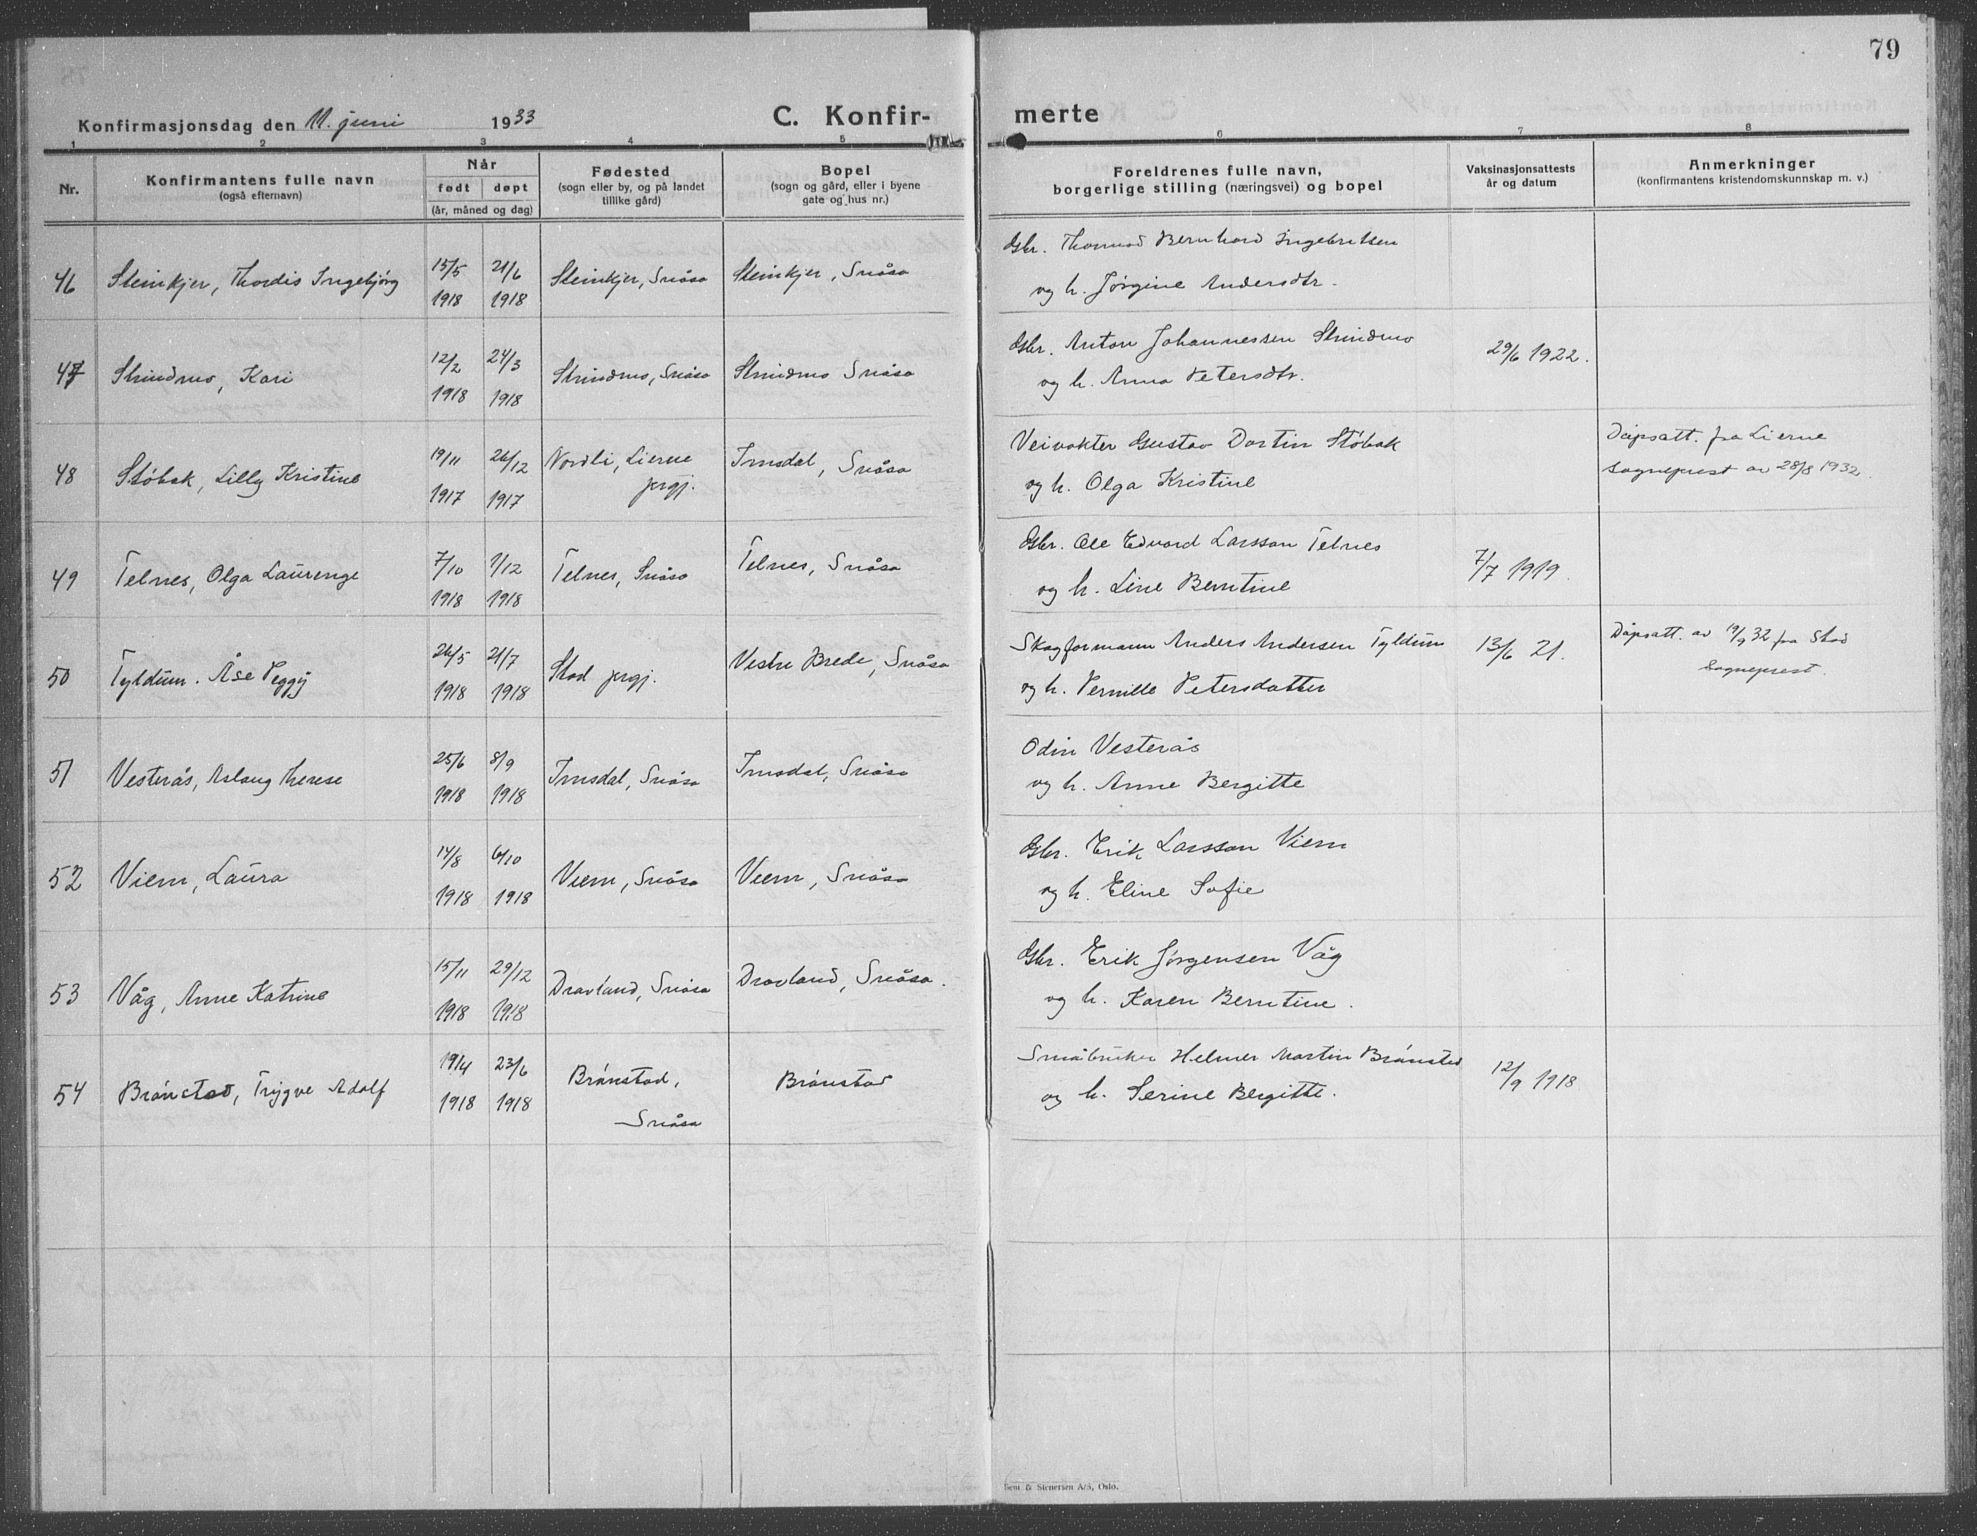 79
Konfirmasjonsdag den 11. juni 1933
C. Konfir-
merte
1 2 3 4 5 6 7 8
Nr.
Konfirmantens fulle navn
(også efternavn)
Når
født døpt
(år, måned og dag)
Fødested
(sogn eller by, og på landet
tillike gård)
Bopel
(sogn og gård, eller i byene
gate og hus nr.)
Foreldrenes fulle navn,
borgerlige stilling (næringsvei) og bopel
Vaksinasjonsattests
år og datum
Anmerkninger
(konfirmantens kristendomskunnskap m. v.)
46 Steinkjer, Thordis Ingebjørg 15/5 1918 21/6 1918 Steinkjer, Snåsa Steinkjer, Snåsa
Gbr. Thomas Bernhard Ingebritsen
og h. Jørgine Andersdtr.
47 Strindmo, Kari 12/2 1918 24/3 1918 Strindmo, Snåsa Strindmo Snåsa
Gbr. Anton Johannessen Strindmo
og h. Anna Petersdtr.
29/6 1922.
48 Støbak, Lilly Kristine 19/11 1917 26/12 1917 Nordli, Lierne prgj. Imsdal, Snåsa
Veivokter Gustav Dortin Støbak
og h. Olga Kristine
Dåpsatt. fra Lierne
sogneprest av 28/8 1932.
49 Telnes, Olga Laurenze 7/10 1918 1/12 1918 Telnes, Snåsa Telnes, Snåsa
Gbr. Ole Edvard Larsson Telnes
og h. Line Berntine
7/7 1919.
50 Tyldum. Åse Peggy 26/5 1918 21/7 1918 Stod prgj. Vestre Brede, Snåsa
Skogformann Anders Andersen Tyldum
og h. Pernille Petersdatter
13/6 21.
Dåpsatt. av 19/9 32 fra Stod
sogneprest.
51 Vesterås, Aslaug Therese 25/6 1918 8/9 1918 Imsdal, Snåsa Imsdal, Snåsa
Odin Vesterås
og h. Anne Bergitte
52 Viem, Laura 14/8 1918 6/10 1918 Viem, Snåsa Viem, Snåsa
Gbr. Erik Larsson Viem
og h. Eline Sofie
53 Våg, Anne Katrine 15/11 1918 29/12 1918 Dravland, Snåsa Dravland, Snåsa.
Gbr. Erik Jørgensen Våg
og h. Karen Berntine.
54 Brønstad, Trygve Adolf 19/4 1918 23/6 1918 Brønstad, Snåsa Brønstad
Småbruker Helmer Martin Brønstad
og h. Serine Bergitte.
12/9 1918
& Stenersen A/S, Oslo.